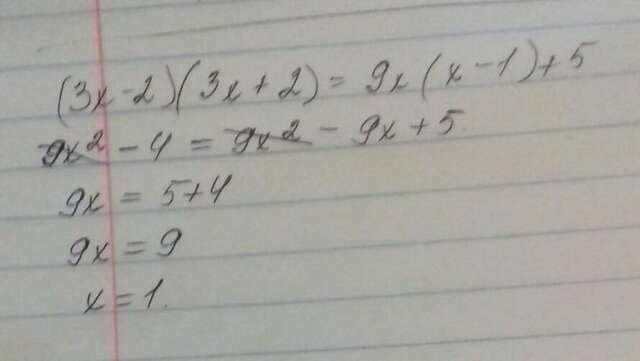 (3x-2)(3x+2)=9x(x-1)+5
9x²-4=9x²-9x+5.
9x=5+4
9x=9
x=1.